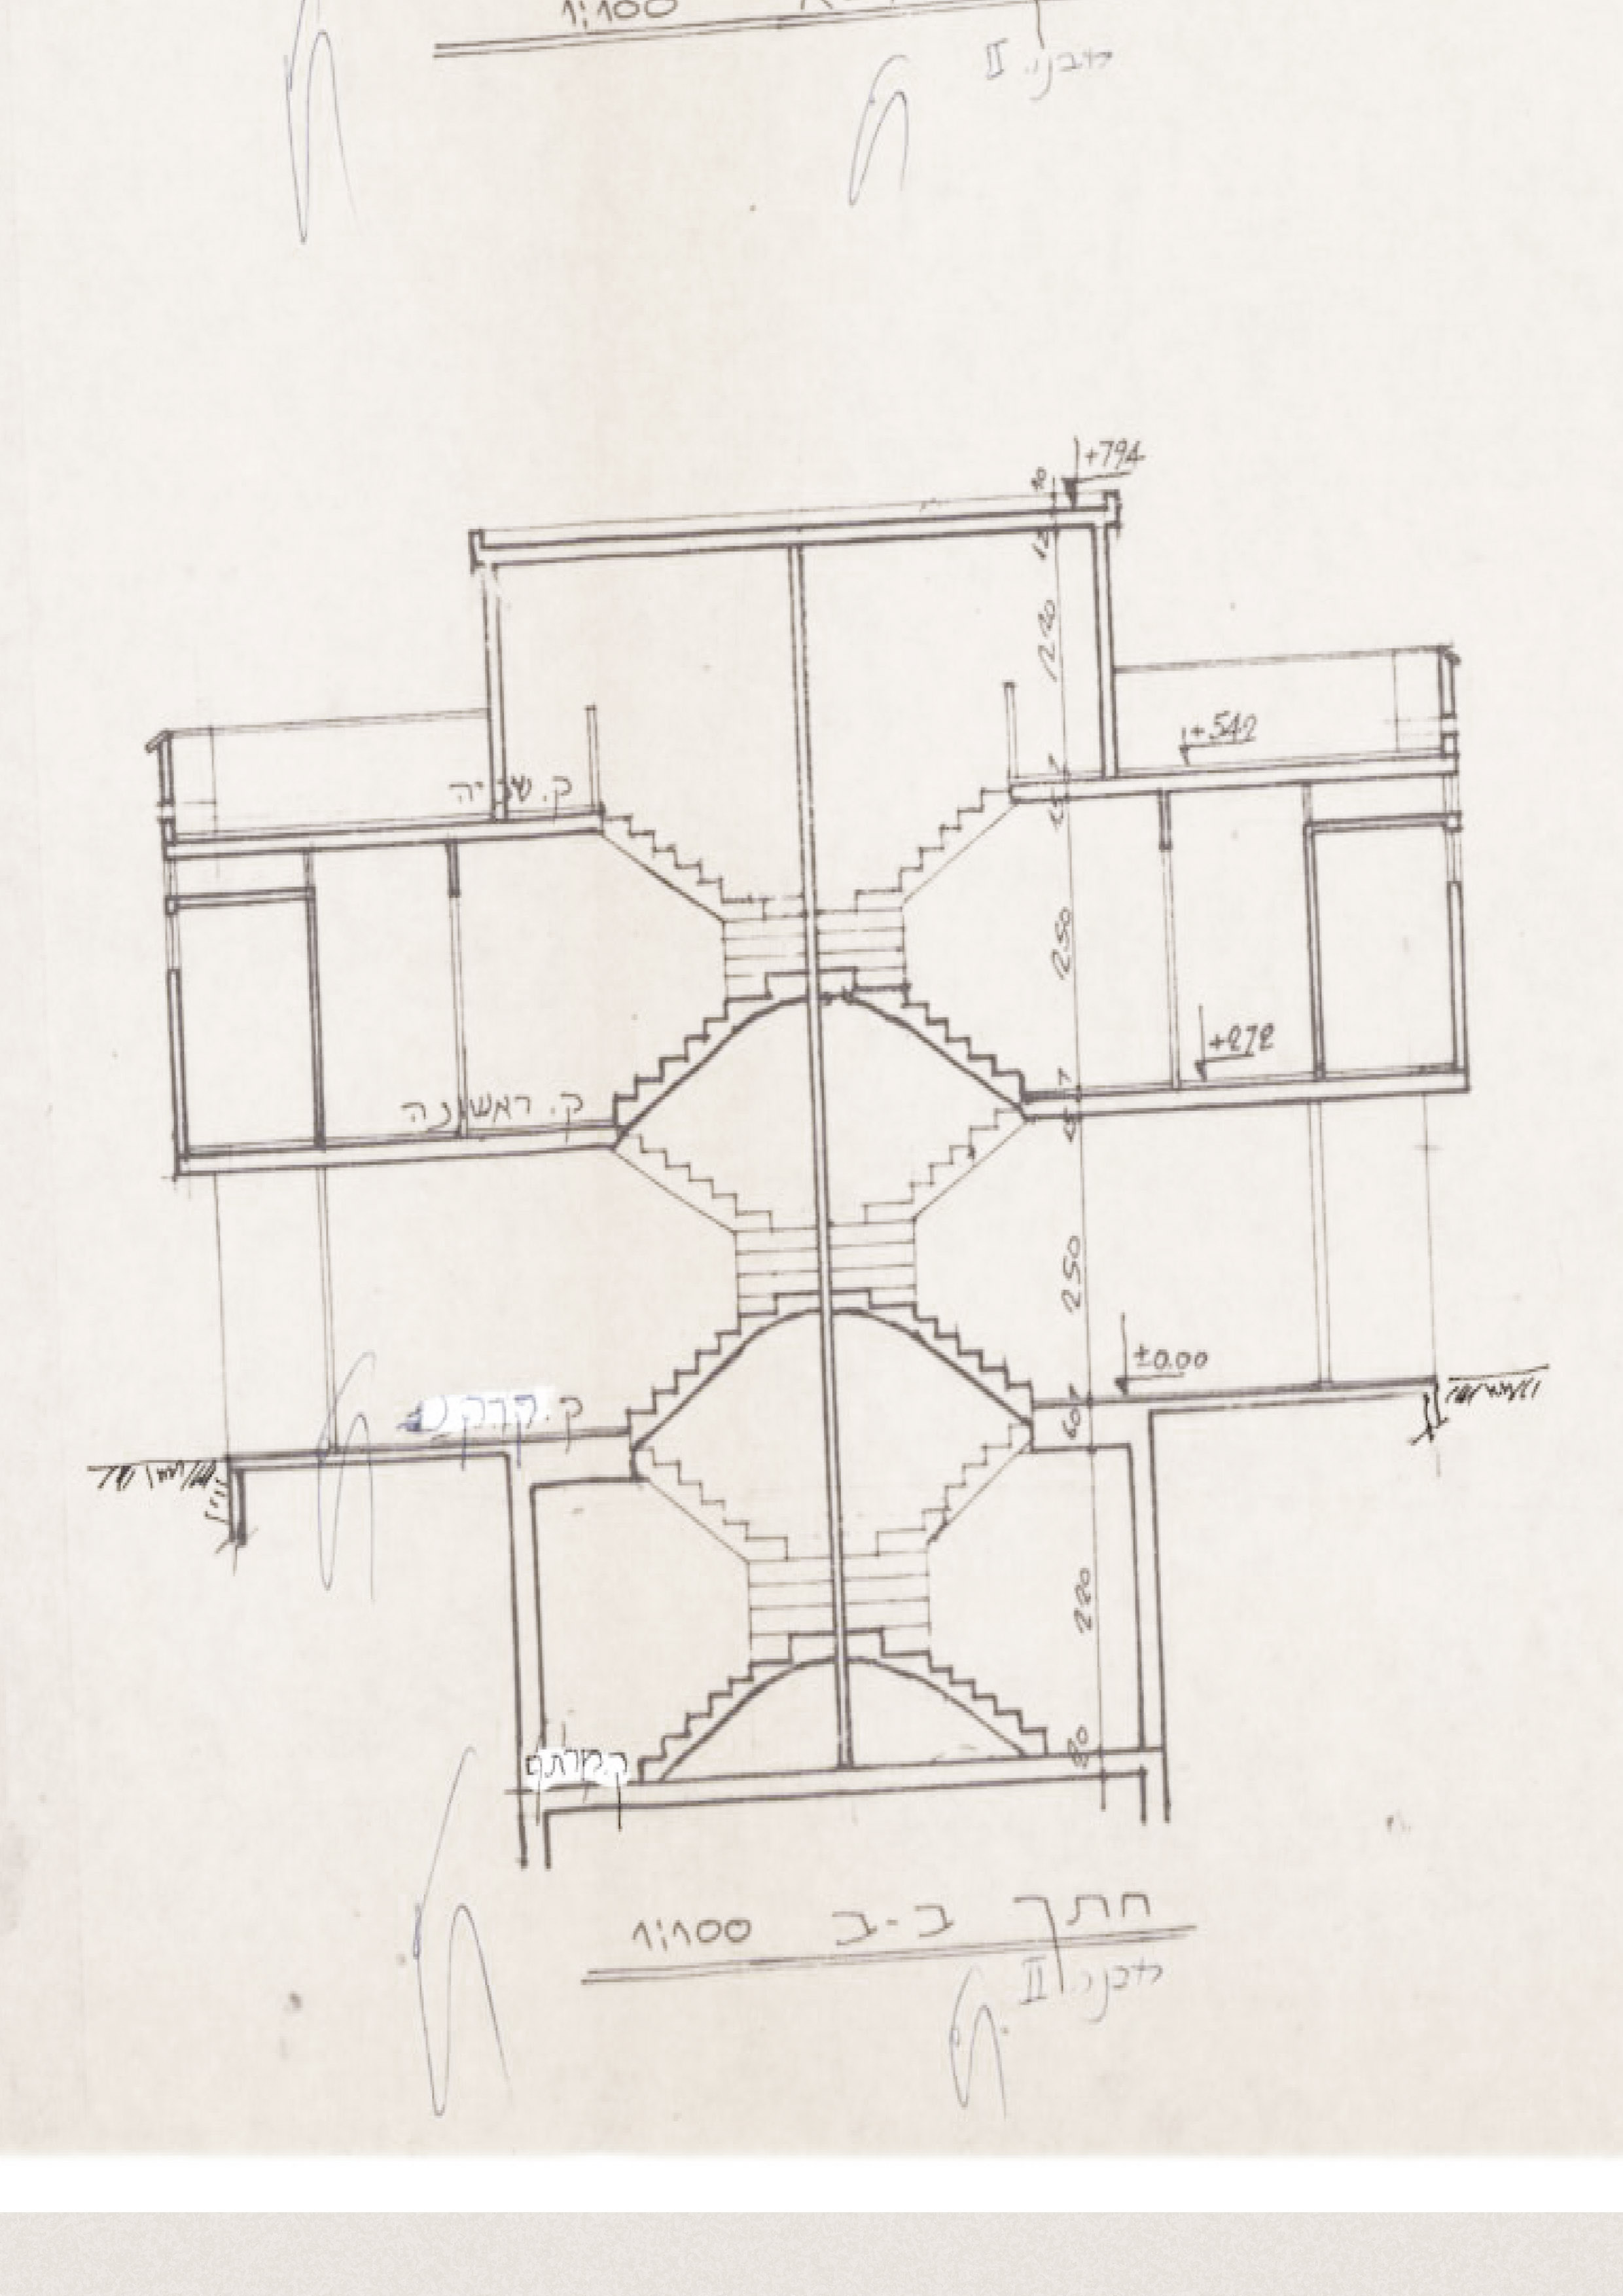 1:100
מבנה II
+794
10
12
220
+542
ק. שניה
7
15
250
+272
7
ק. ראשונה
15
250
±0.00
7
ק. קרקע
60
220
20
ק. מרתף
חתך ב-ב 1:100
מבנה II